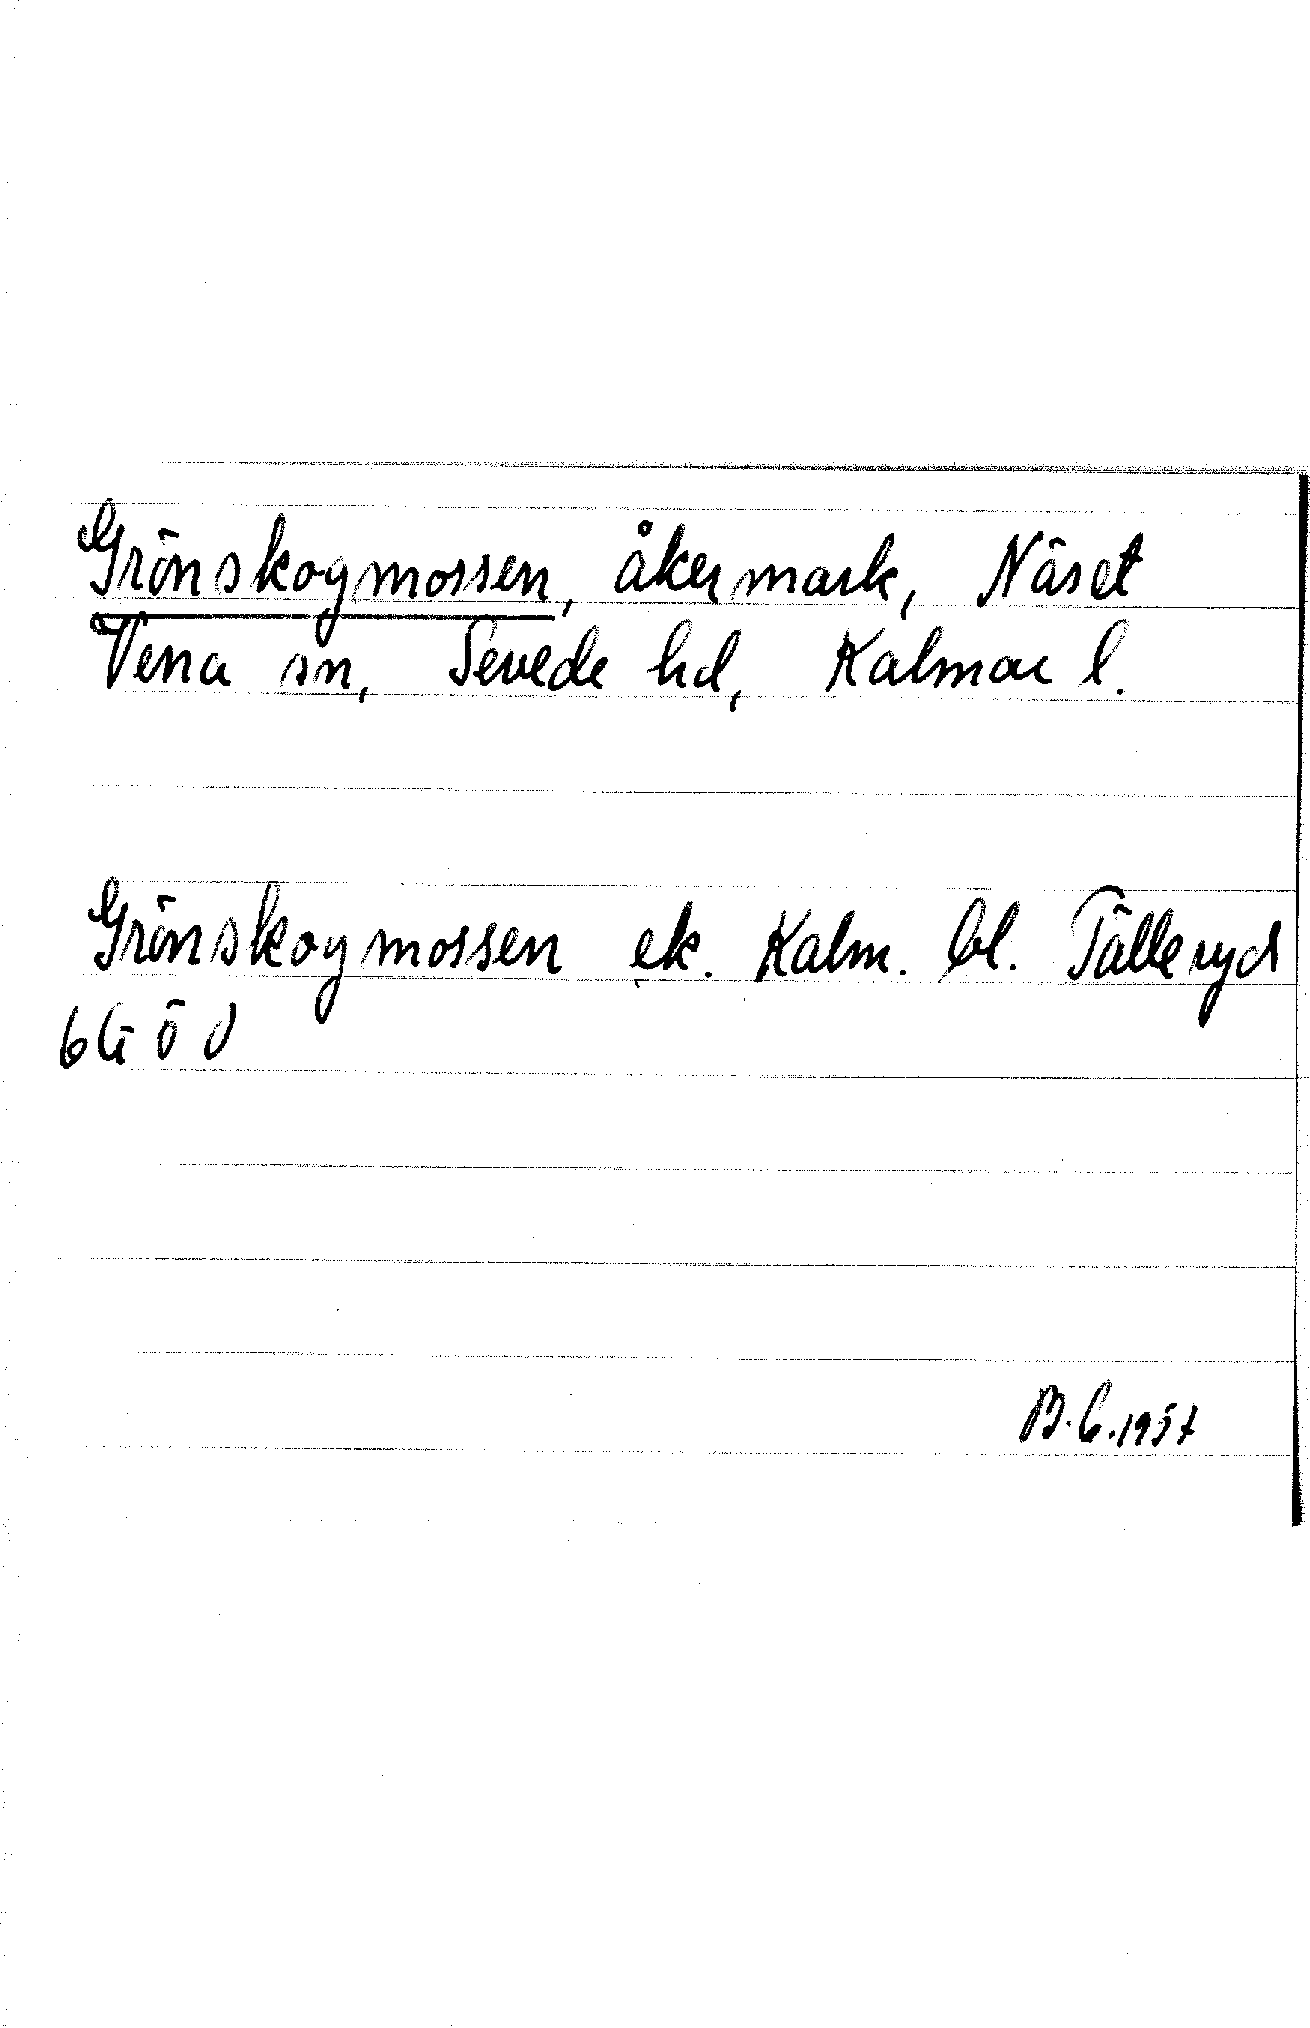 Grönskogmossen, åkermark, Näset
Vena sn, Sevede hd, Kalmar l.
Grönskogmossen ek. Kalm. bl. Tälleryd
6G ö d
B.C.1957